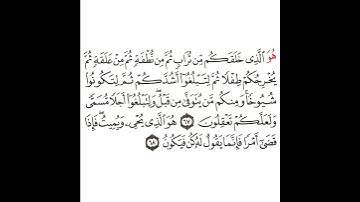 هُوَ الَّذِي خَلَقَكُم مِّن تُرَابٍ ثُمَّ مِن نُّطْفَةٍ ثُمَّ مِنْ عَلَقَةٍ ثُمَّ
يُخْرِجُكُمْ طِفْلًا ثُمَّ لِتَبْلُغُوا أَشُدَّكُمْ ثُمَّ لِتَكُونُوا
شُيُوخًا وَمِنكُم مَّن يُتَوَفَّىٰ مِن قَبْلُ وَلِتَبْلُغُوا أَجَلًا مُّسَمًّى
وَلَعَلَّكُمْ تَعْقِلُونَ ٦٧ هُوَ الَّذِي يُحْيِي وَيُمِيتُ فَإِذَا
قَضَىٰ أَمْرًا فَإِنَّمَا يَقُولُ لَهُ كُن فَيَكُونُ ٦٨